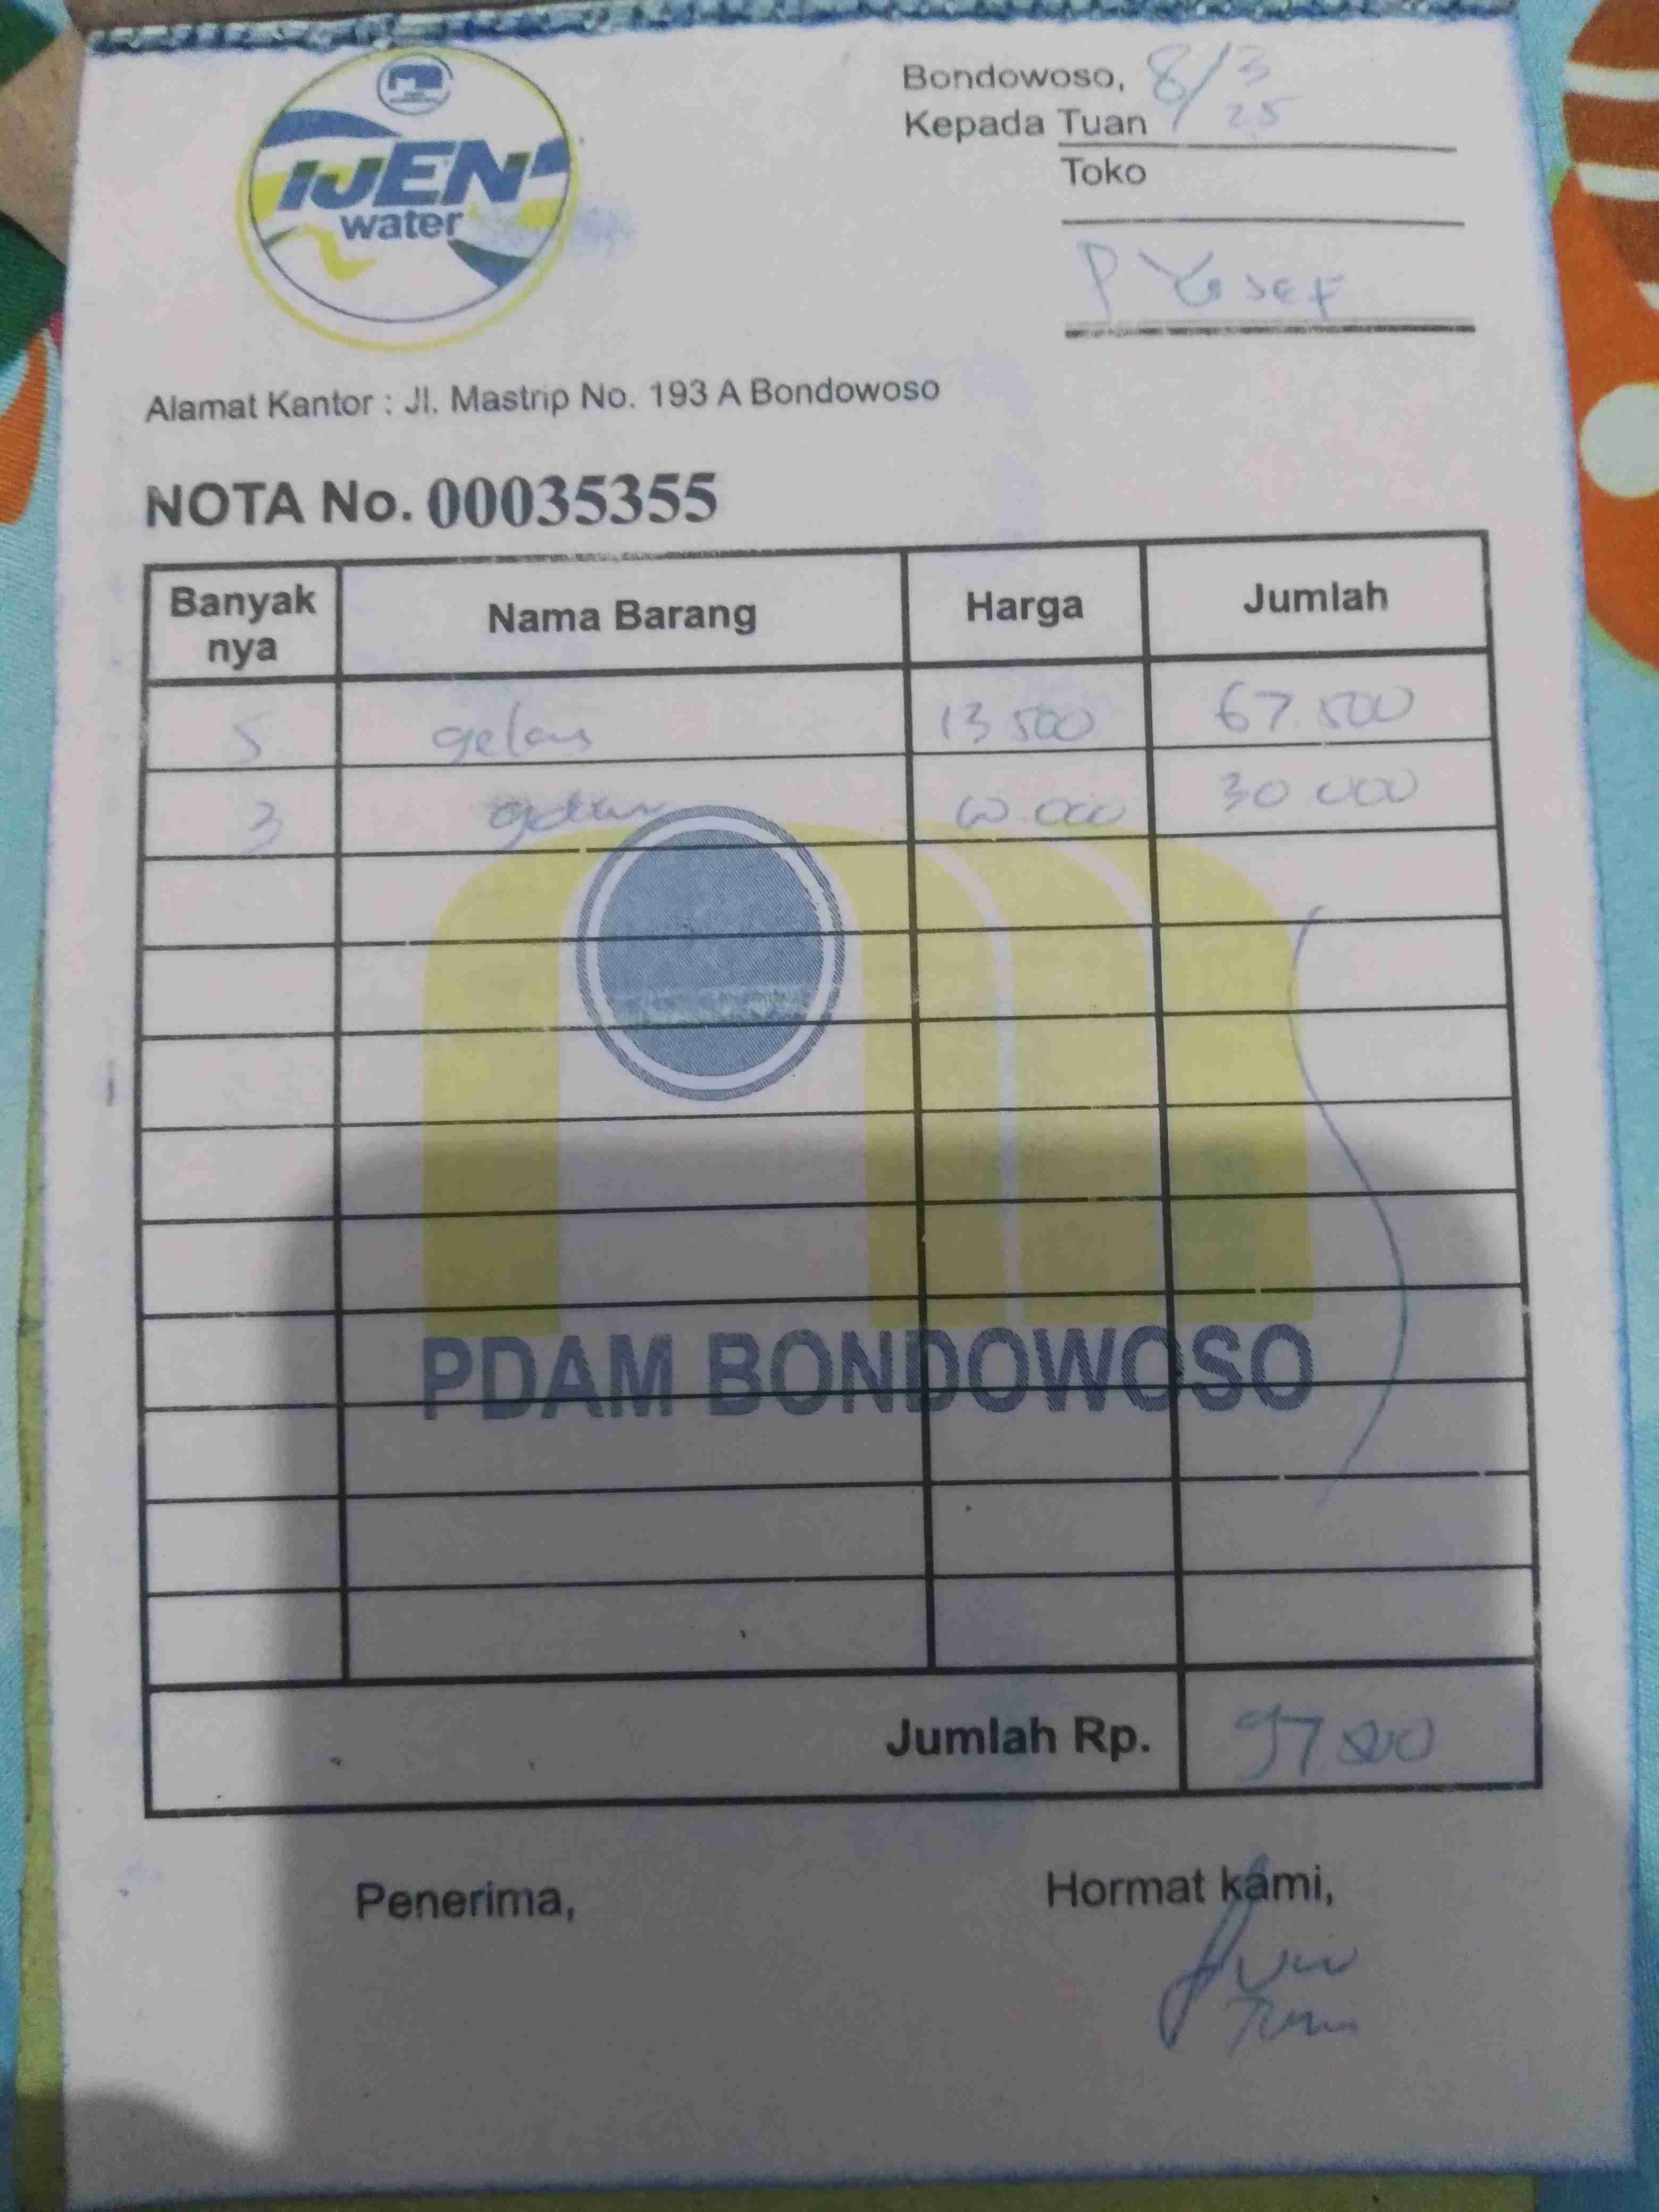 IJEN
water
Bondowoso, 8/3
Kepada Tuan 25
Toko
P Yosef
Alamat Kantor : Jl. Mastrip No. 193 A Bondowoso
NOTA No. 00035355
Banyak nya Nama Barang Harga Jumlah
5 gelas 13 500 67.500
3 10.000 30 000
PDAM BONDOWOSO
Jumlah Rp. 97 500
Penerima, Hormat kami,